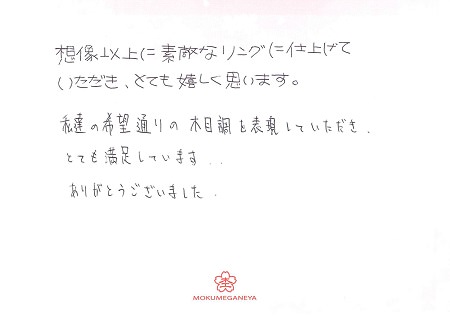 想像以上に素敵なリングに仕上げて
いただき、とても嬉しく思います。
私達の希望通りの木目調を表現していただき、
とても満足しています..
ありがとうございました.
MOKUMEGANEYA